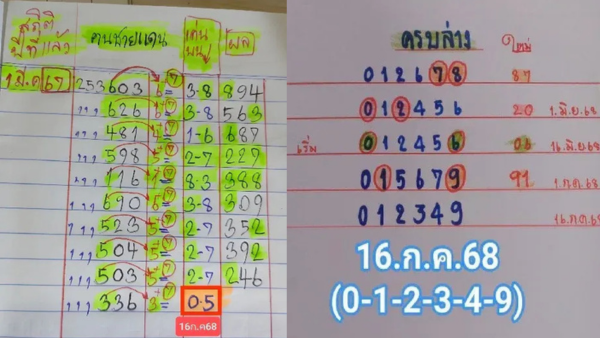 สถิติ
ปีที่แล้ว
คนชายแดน
เด่น
บน
ผล
1 มี.ค 67
253603 6= 7 3-8 894
,,, 626 6= 7 3-8 563
,,, 481 4= 7 1-6 687
,,, 598 5= 7 2-7 227
,,, 116 7 8-3 388
,,, 690 7 3-8 309
,,, 523 5= 7 2-7 352
,,, 504 5= 7 2-7 392
,,, 503 5= 7 2-7 246
,,, 336 3= 7 0-5
16ก.ค68
ครบล่าง ใหม่
012678 87
012456 20 1.มิ.ย.68
เริ่ม 012456 06 16.มิ.ย.68
015679 91 1.ก.ค.68
012349 16.ก.ค.68
16.ก.ค.68
(0-1-2-3-4-9)